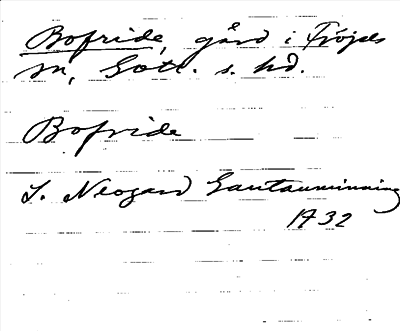 Bofride, gård i Fröjels
sn, Gotl. s. hd.
Bofride
S. Neogard Gautauminning
1932